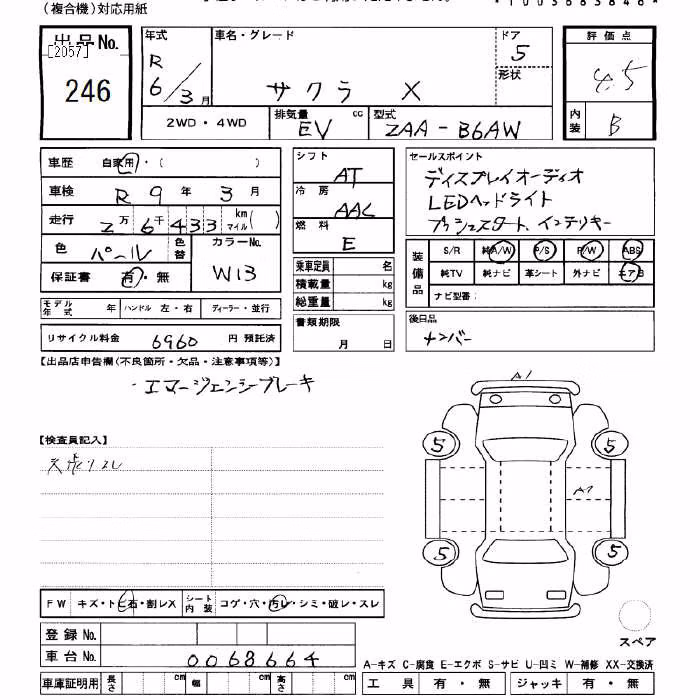 (複合機)対応用紙
*1003683846*
出品No.
[2057]
246
年式 R 6/3月
車名・グレード サクラ X
ドア 5
形状
2WD・4WD
排気量 EV cc
型式 ZAA-B6AW
評価点 4.5
内装 B
車歴 自家用・( )
車検 R 9年 3月
走行 2万6千433 km マイル( )
色 パール 色替
カラーNo. W13
保証書 有・無
シフト AT
冷房 AAC
燃料 E
乗車定員 名
積載量 kg
総重量 kg
セールスポイント
ディスプレイオーディオ
LEDヘッドライト
プッシュスタート、インテリキー
装備品 S/R 純A/W P/S P/W ABS
純TV 純ナビ 革シート 外ナビ エアB
ナビ型番:
モデル年式 年 ハンドル 左・右 ディーラー・並行
リサイクル料金 6960 円 預託済
書類期限 月 日
後日品
ナンバー
【出品店申告欄(不良箇所・欠品・注意事項等)】
・エマージェンシーブレーキ
【検査員記入】
A1
5 5
A1
5 5
スペア
FW キズ・トビ石・割レX
シート内装 コゲ・穴・汚レ・シミ・破レ・スレ
登録No.
車台No. 0068664
車庫証明用 長さ cm 幅 cm 高さ cm
A-キズ C-腐食 E-エクボ S-サビ U-凹ミ W-補修 XX-交換済
工具 有・無 ジャッキ 有・無